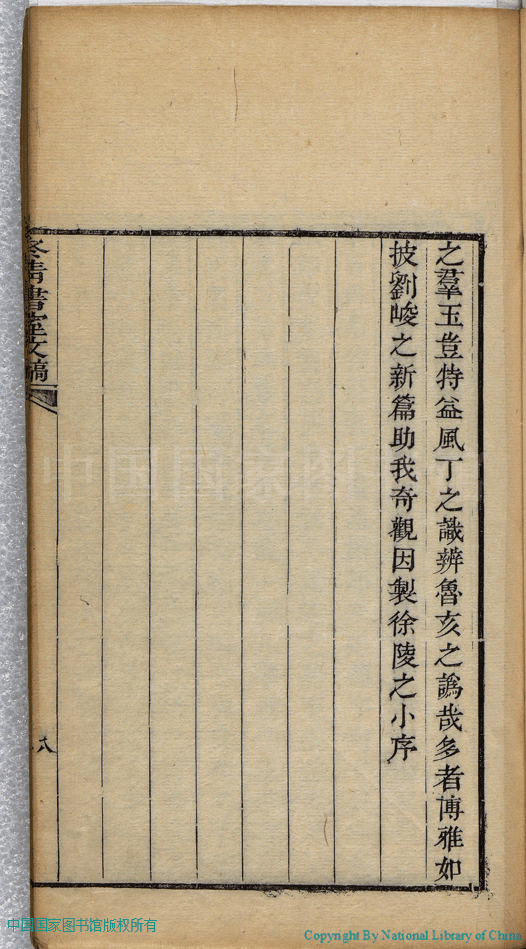 之羣玉豈特益風丁之識辨魯亥之譌哉多者博雅如
披劉峻之新篇助我奇觀因製徐陵之小序
冬青書室文稿
八
中国国家图书馆
中国国家图书馆版权所有
Copyright By National Library of China